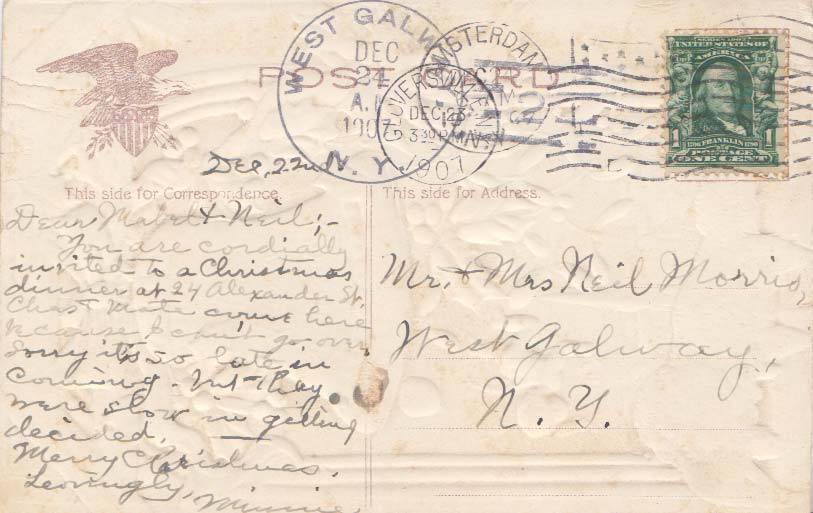 POST CARD
WEST GALWAY
DEC
24
A.M
1907
N.Y.
AMSTERDAM
GLOVERSVILLE
DEC 23
330 PM
1907
SERIES 1902
UNITED STATES OF
AMERICA
1
1706 FRANKLIN 1790
1
POSTAGE
ONE CENT
Dec, 22nd
This side for Correspondence.
Dear Mabel & Neil;-
You are cordially
invited to a Christmas
dinner at 24 Alexander St.
Chas & Mate come here
because I can't go over
Sorry it's so late in
coming. but they
were slow in getting
decided,
Merry Christmas.
Lovingly, Minnie.
This side for Address.
Mr. & Mrs Neil Morris,
West Galway,
N. Y.